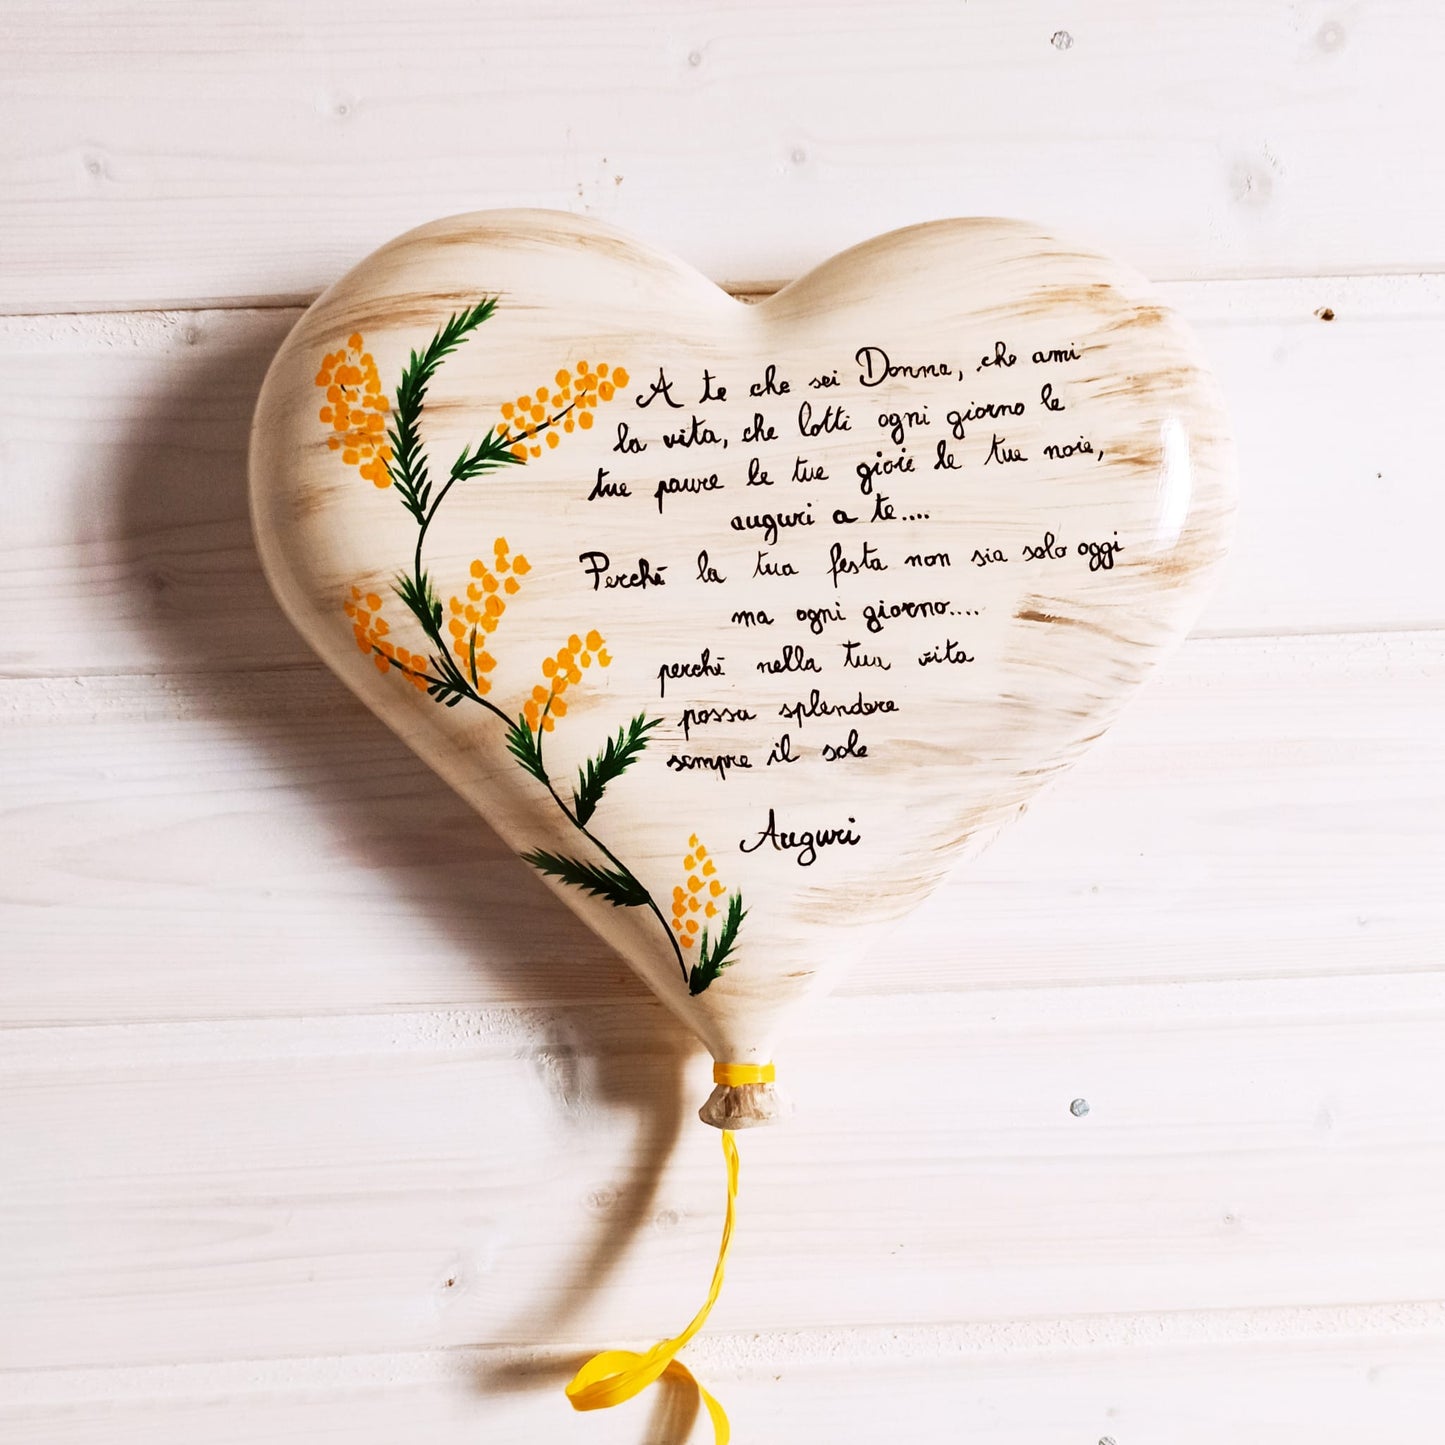 A te che sei Donna, che ami
la vita, che lotti ogni giorno le
tue paure le tue gioie le tue noie,
auguri a te....
Perchè la tua festa non sia solo oggi
ma ogni giorno....
perchè nella tua vita
possa splendere
sempre il sole
Auguri